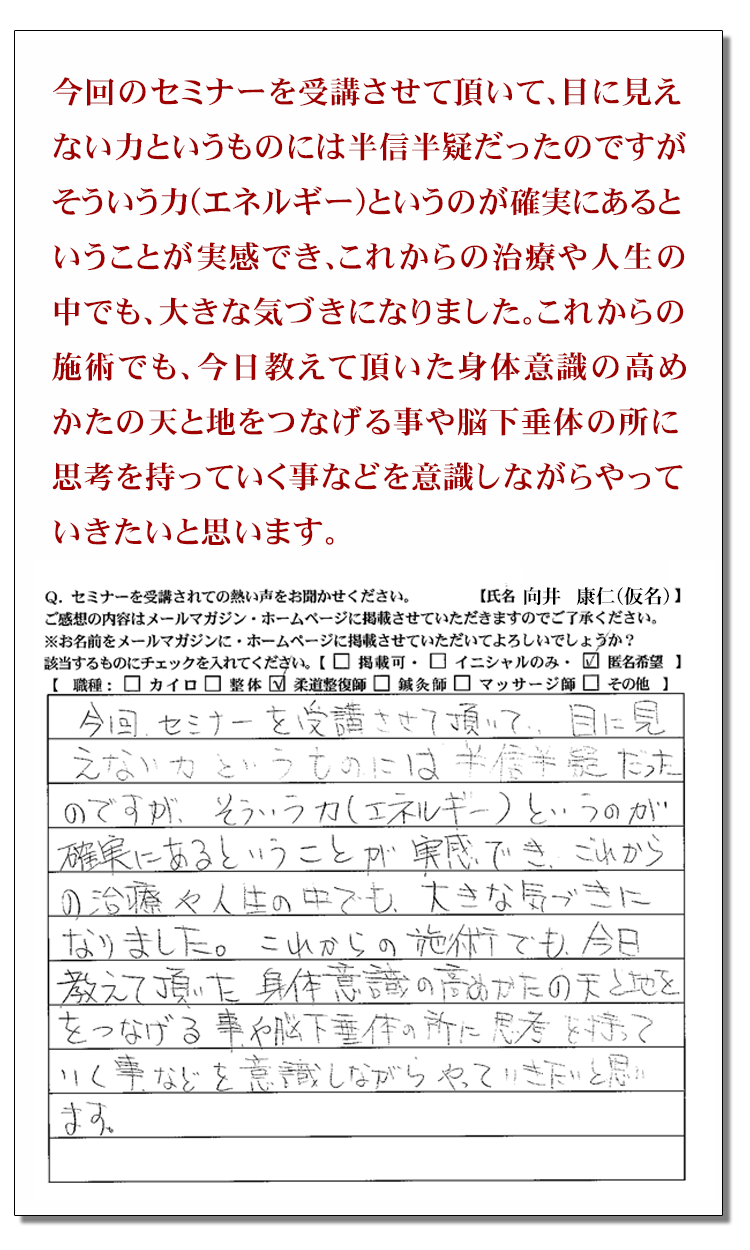 今回のセミナーを受講させて頂いて、目に見え
ない力というものには半信半疑だったのですが
そういう力(エネルギー)というのが確実にあると
いうことが実感でき、これからの治療や人生の
中でも、大きな気づきになりました。これからの
施術でも、今日教えて頂いた身体意識の高め
かたの天と地をつなげる事や脳下垂体の所に
思考を持っていく事などを意識しながらやって
いきたいと思います。
Q. セミナーを受講されての熱い声をお聞かせください。 【氏名 向井 康仁(仮名)】
ご感想の内容はメールマガジン・ホームページに掲載させていただきますのでご了承ください。
※お名前をメールマガジンに・ホームページに掲載させていただいてよろしいでしょうか?
該当するものにチェックを入れてください。【 □ 掲載可・ □ イニシャルのみ・ ☑ 匿名希望 】
【 職種: □ カイロ □ 整体 ☑ 柔道整復師 □ 鍼灸師 □ マッサージ師 □ その他 】
今回、セミナーを受講させて頂いて、目に見
えない力というものには半信半疑だった
のですが、そういう力(エネルギー)というのが
確実にあるということが実感でき、これから
の治療や人生の中でも、大きな気づきに
なりました。これからの施術でも、今日
教えて頂いた身体意識の高めかたの天と地を
をつなげる事や脳下垂体の所に思考を持って
いく事などを意識しながらやっていきたいと思い
ます。